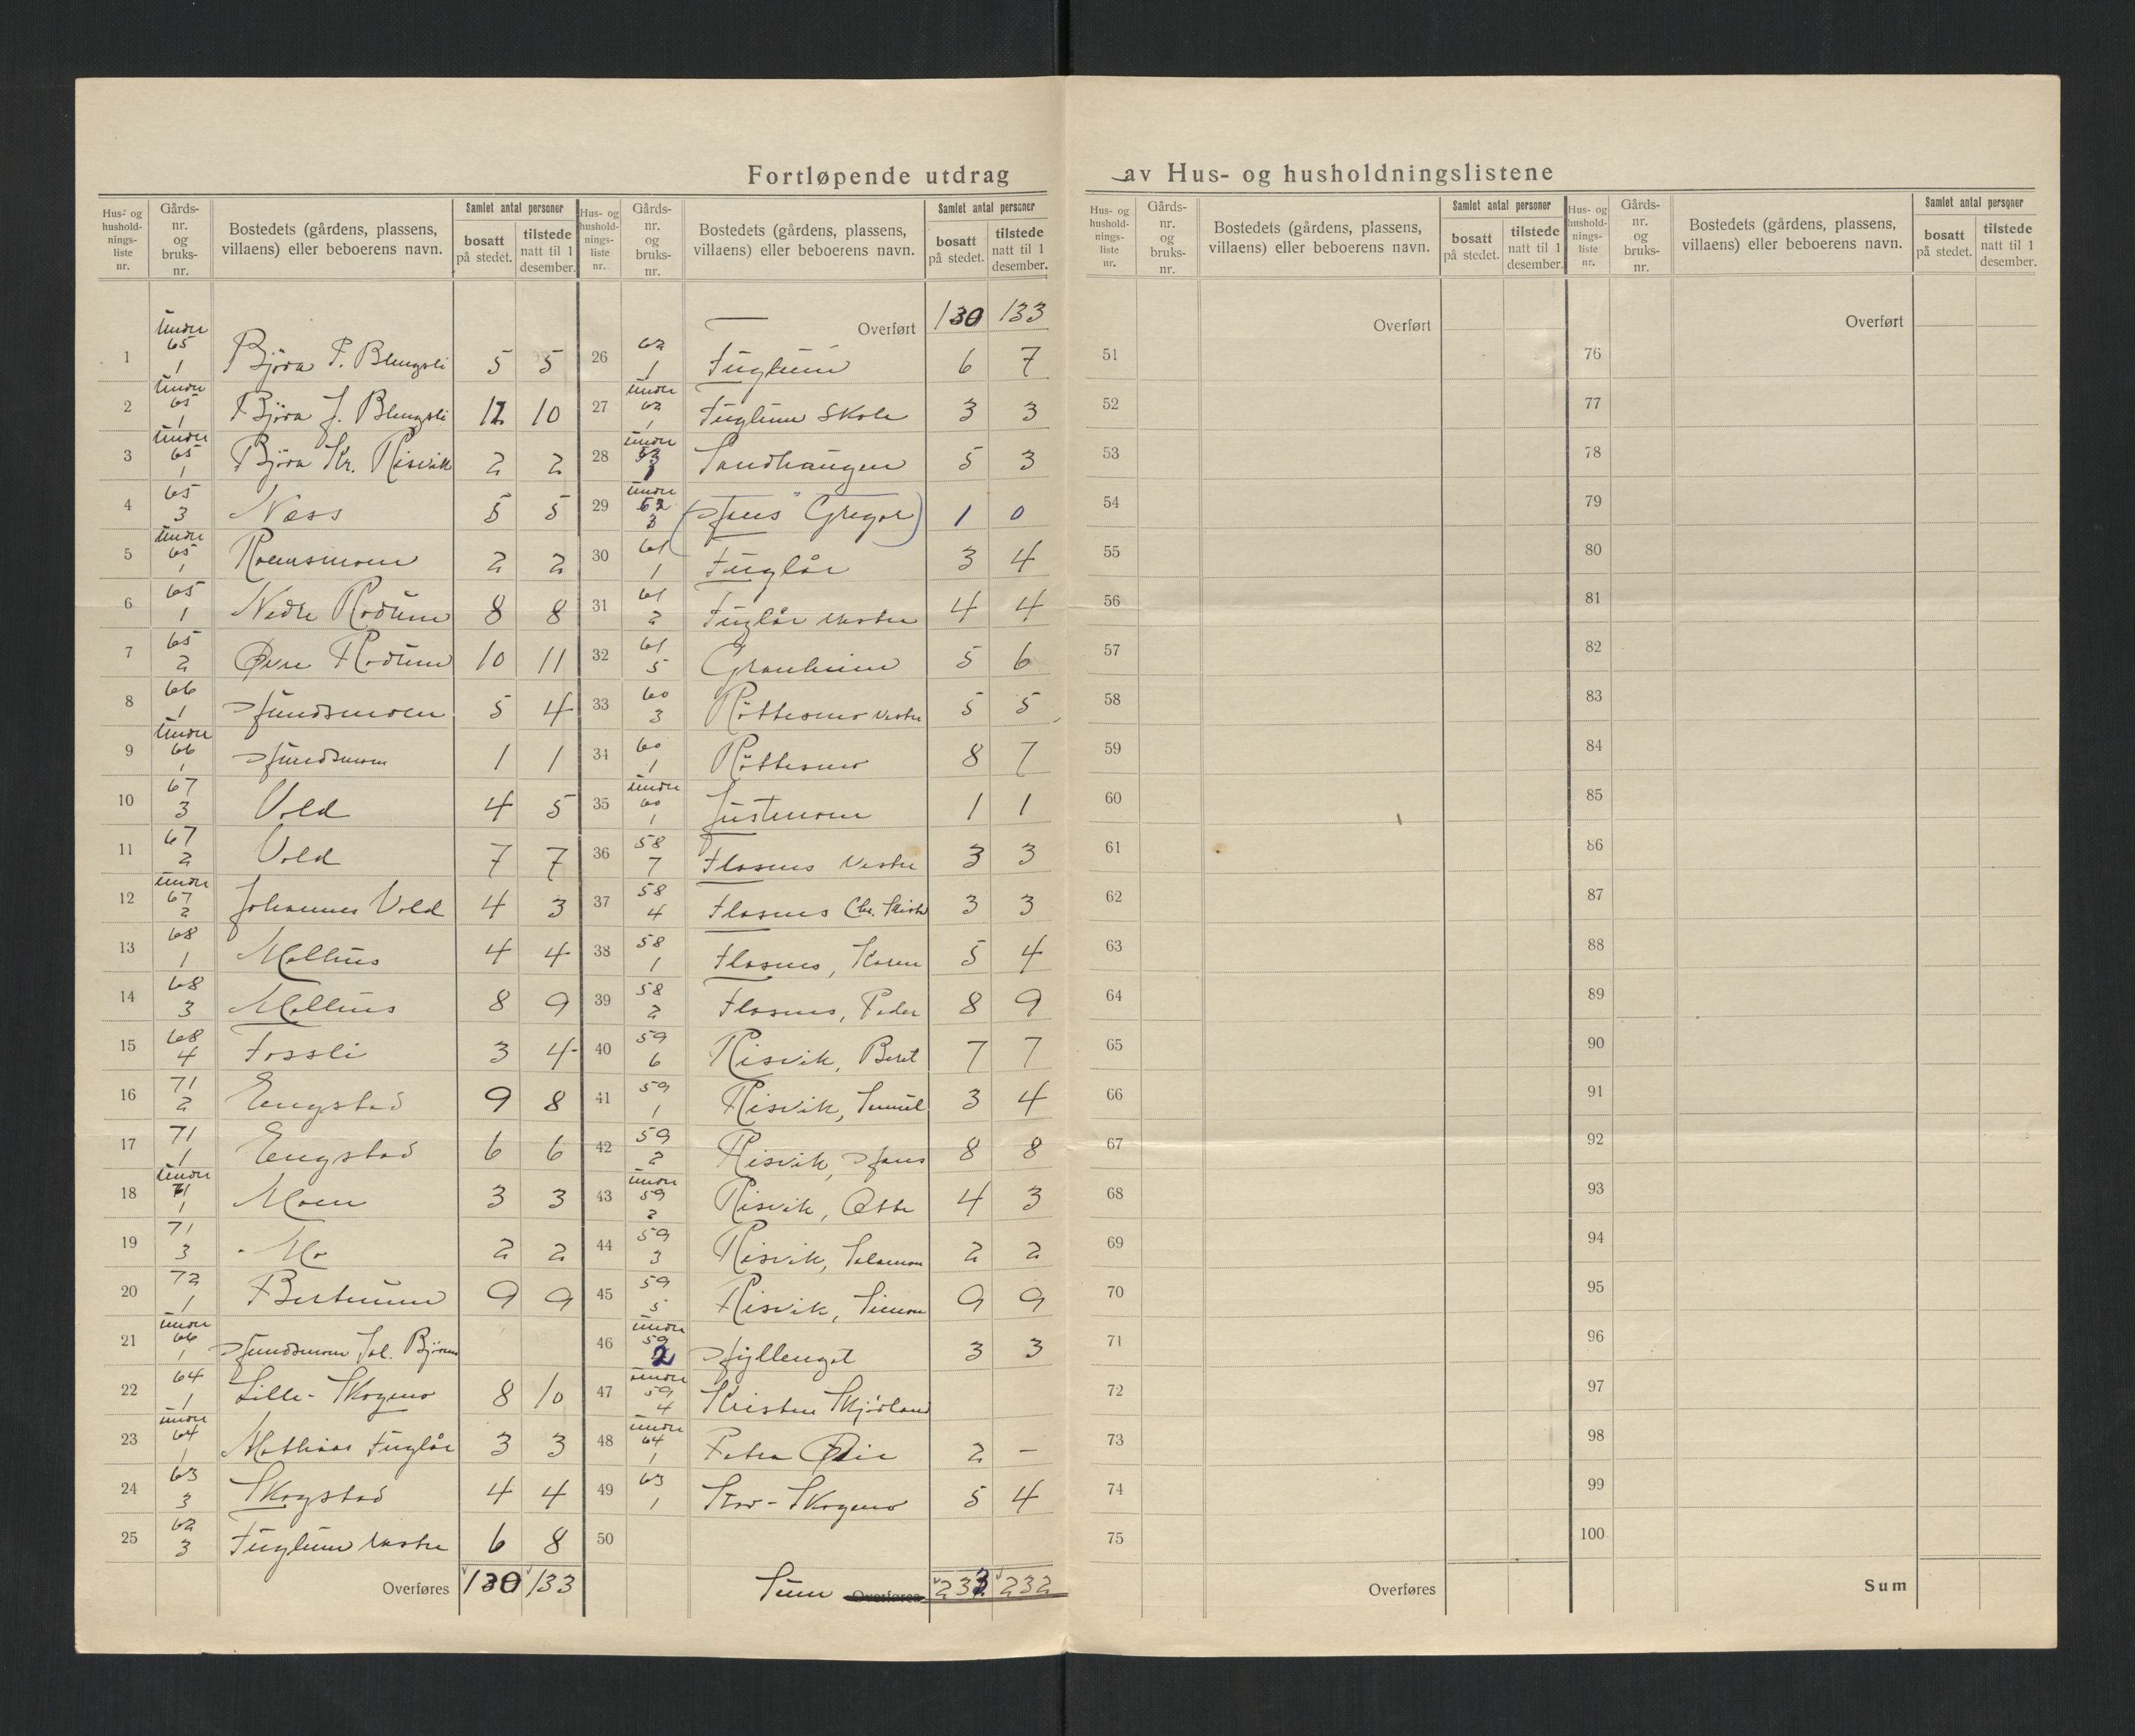 Fortløpende utdrag av Hus- og husholdningslistene
Hus- og husholdningsliste nr. | Gårdsnr. og bruksnr. | Bostedets (gårdens, plassens, villaens) eller beboerens navn. | Samlet antal personer | bosatt på stedet. | tilstede natt til 1 desember.
1 | under 65 1 | Björa P. Blengsli | 5 | 5
2 | under 65 1 | Björa J. Blengsli | 12 | 10
3 | under 65 1 | Björa Kr. Risvik | 2 | 2
4 | 65 3 | Næss | 5 | 5
5 | under 65 1 | 2 | 2
6 | 65 1 | Nedre Rodum | 8 | 8
7 | 65 2 | Øvre Rodum | 10 | 11
8 | 66 1 | Hundsmoen | 5 | 4
9 | under 66 1 | Hundsmoen | 1 | 1
10 | 67 3 | Vold | 4 | 5
11 | 67 2 | Vold | 7 | 7
12 | under 67 2 | Johannes Vold | 4 | 3
13 | 68 1 | Mellius | 4 | 4
14 | 68 3 | Mellius | 8 | 9
15 | 68 4 | Fossli | 3 | 4
16 | 71 2 | Engstad | 9 | 8
17 | 71 1 | Engstad | 6 | 6
18 | under 71 1 | Moen | 3 | 3
19 | 71 3 | Mo | 2 | 2
20 | 72 1 | 9 | 9
21 | under 66 1 | Hundsmoen
22 | 64 1 | Lille-Skogmo | 8 | 10
23 | under 64 1 | Mathias Fuglår | 3 | 3
24 | 63 3 | Skogstad | 4 | 4
25 | 62 3 | Fuglum vestre | 6 | 8
Overføres | 130 | 133
Hus- og husholdningsliste nr. | Gårdsnr. og bruksnr. | Bostedets (gårdens, plassens, villaens) eller beboerens navn. | Samlet antal personer | bosatt på stedet. | tilstede natt til 1 desember.
Overført | 130 | 133
26 | 62 1 | Fuglum | 6 | 7
27 | under 62 1 | Fuglum Skole | 3 | 3
28 | under 1 | Sandhaugen | 5 | 3
29 | under 62 3 | (Hans Gregor) | 1 | 0
30 | 61 1 | Fuglår | 3 | 4
31 | 61 2 | Fuglår vestre | 4 | 4
32 | 61 5 | Granheim | 5 | 6
33 | 60 3 | Röttesmo vestre | 5 | 5
34 | 60 1 | Röttesmo | 8 | 7
35 | under 60 1 | Justmoen | 1 | 1
36 | 58 7 | Flasnes Vestre | 3 | 3
37 | 58 4 | Flasnes Chr. | 3 | 3
38 | 58 1 | Flasnes, Karen | 5 | 4
39 | 58 2 | Flasnes, Peder | 8 | 9
40 | 59 6 | Risvik, Beret | 7 | 7
41 | 59 1 | Risvik, | 3 | 4
42 | 59 2 | Risvik, Hans | 8 | 8
43 | under 59 2 | Risvik, Otte | 4 | 3
44 | 59 3 | Risvik, Salamon | 2 | 2
45 | 59 5 | Risvik, Simon | 9 | 9
46 | under 59 2 | Hyllenget | 3 | 3
47 | under 59 4 | Kristen Skjörland
48 | under 64 1 | Petra Øie | 2 | –
49 | 63 1 | Stor-Skogmo | 5 | 4
50
Sum | 233 | 232
Hus- og husholdningsliste nr. | Gårdsnr. og bruksnr. | Bostedets (gårdens, plassens, villaens) eller beboerens navn. | Samlet antal personer | bosatt på stedet. | tilstede natt til 1 desember.
Overført
51
52
53
54
55
56
57
58
59
60
61
62
63
64
65
66
67
68
69
70
71
72
73
74
75
Overføres
Hus- og husholdningsliste nr. | Gårdsnr. og bruksnr. | Bostedets (gårdens, plassens, villaens) eller beboerens navn. | Samlet antal personer | bosatt på stedet. | tilstede natt til 1 desember.
Overført
76
77
78
79
80
81
82
83
84
85
86
87
88
89
90
91
92
93
94
95
96
97
98
99
100
Sum